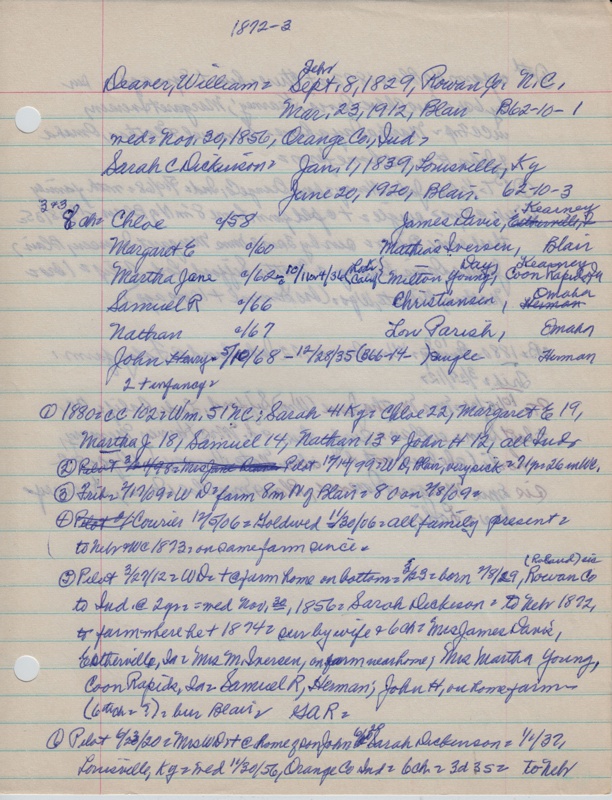 1872-3
Deaver, William = Sept. 8, 1829, Rowan Co. N.C.
Febr
Mar. 23, 1912, Blair B62-10-1
med = Nov. 30, 1856, Orange Co., Ind =
Sarah C Dickinson = Jan. 1, 1839, Louisville, Ky
June 20, 1920, Blair. 62-10-3
3+3 Kearney
8 ch = Chloe c/58 James Davis, Estherville, Ia
Margaret E c/60 Mathias Iversen, Blair
Martha Jane c/62 = (Lodi Calif) Milton Young, Day, Kearney Coon Rapids, Ia
Samuel R c/66 Christiansen, Omaha Herman
Nathan c/67 Lou Parish, Omaha
John Harry = 5/10/68 - 12/28/35 (B66-14- single Herman
2 + infancy =
① 1880 = CC 102 = Wm. 51 NC; Sarah 41 Ky = Chloe 22, Margaret E 19,
Martha J 18, Samuel 14, Nathan 13 & John H 12, all Ind
② Pilot Pilot 1/14/99 = WD, Blair, very sick = 71 yr = 26 in WC.
③ Trib = 2/17/09 = WD = farm 8 m N of Blair = 80 on 2/8/09 =
④ Pilot Courier 12/5/06 = Goldwed 11/30/06 = all family present =
to Nebr & WC 1873 = on same farm since =
⑤ Pilot 3/27/12 = WD = + @ farm home on bottom = 3/23 = born 2/8/29, Rowan Co (Roland) sic
to Ind @ 2 yrs = med Nov. 30, 1856 = Sarah Dickeson = to Nebr 1872,
to farm where he + 1874 = sur by wife & 6 ch = Mrs James Davis,
Estherville, Ia = Mrs M. Iversen, on farm near home; Mrs Martha Young,
Coon Rapids, Ia = Samuel R, Herman; John H, on home farm
(6th ch = ?) = bur Blair = GAR =
⑥ Pilot 6/23/20 = Mrs WD + @ home of son John 6/20 Sarah Dickenson = 1/1/37,
Louisville, Ky = med 11/30/56, Orange Co Ind = 6 ch = 3d 3s = to Nebr